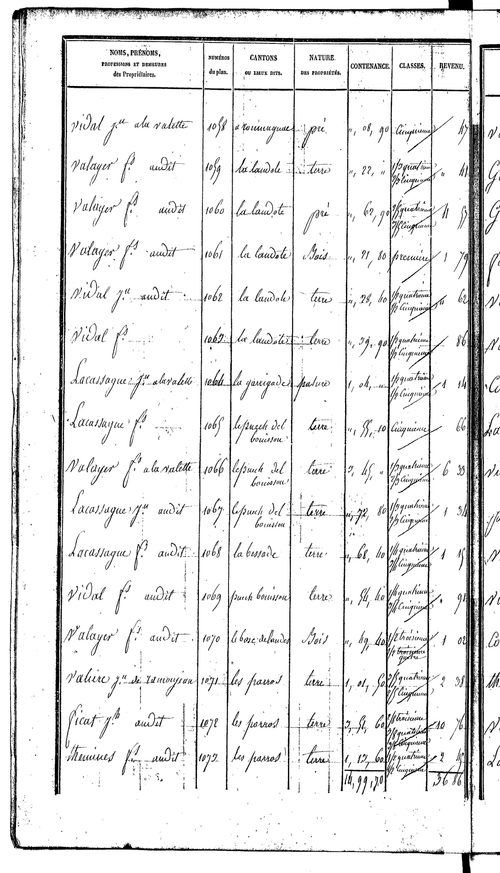 NOMS, PRÉNOMS, PROFESSIONS ET DEMEURES des Propriétaires. NUMÉROS du plan. CANTONS OU LIEUX DITS. NATURE DES PROPRIÉTÉS. CONTENANCE. CLASSES. REVENU.
Vidal jne a la valette 1058 pré ", 08, 90 Cinquième " 47
Valayer fs audit 1059 la landote terre ", 22, " 1/2 quatrième 1/2 Cinquième " 41
Valayer fs audit 1060 la landote pré ", 62, 90 quatrième Cinquième 4 57
Valayer fs audit 1061 la landote Bois ", 21, 80 première 1 79
Vidal jne audit 1062 la landote terre ", 28, 60 1/2 quatrième 1/2 Cinquième " 62
Vidal fs 1063 la landote terre ", 39, 90 1/2 quatrième 1/2 Cinquième " 86
Lacassagne jne a la valette 1064 la garrigade pature 1, 04, " 1/2 quatrième 1/2 Cinquième 1 14
Lacassagne fs 1065 le puech del bouisson terre ", 55, 10 Cinquième " 66
Valayer fs a la valette 1066 le puech del bouisson terre 3, 45, " quatrième Cinquième 6 33
Lacassagne jne audit 1067 le puech del bouisson terre ", 72, 80 quatrième Cinquième 1 34
Lacassagne fs audit 1068 la bessade terre ", 68, 60 quatrième Cinquième 1 15
Vidal fs audit 1069 puech bouisson terre ", 54, 60 quatrième Cinquième " 91
Valayer fs audit 1070 le bosc de landes Bois ", 49, 40 1/2 troisième 1 02
jne de 1071 les parros terre 1, 01, 50 quatrième Cinquième 2 38
ficat audit 1072 les parros terre 3, 54, 60 troisième quatrième Cinquième 10 76
themines fs audit 1073 les parros terre 1, 13, 60 quatrième Cinquième 2 45
14, 99, 30 36 86